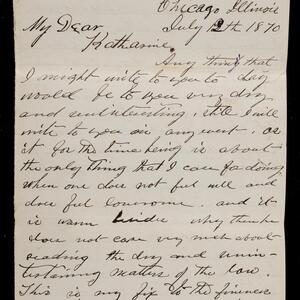 Chicago Illinois
July 12th 1870
My Dear
Katharine.
Any thing that
I might write to you to day
would be to you very dry
and uninteresting, still I will
write to you in any event. as
it for the time being is about
the only thing that I care for doing
when one does not feel well and
does feel lonesome. and it
is warm why then he
does not care very much about
reading the dry and unin-
teristaning matters of the law.
This is my fix to the